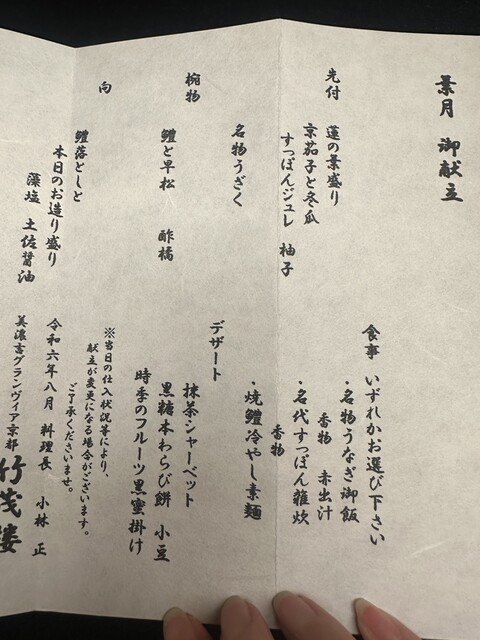 葉月 御献立
先付
蓮の葉盛り
京茄子と冬瓜
すっぽんジュレ 柚子
名物うざく
椀物
鱧と早松 酢橘
向
鱧落としと
本日のお造り盛り
藻塩 土佐醤油
食事 いずれかお選び下さい
・名物うなぎ御飯
香物 赤出汁
・名代すっぽん雑炊
香物
・焼鱧冷やし素麺
デザート
抹茶シャーベット
黒糖本わらび餅 小豆
時季のフルーツ黒蜜掛け
※当日の仕入状況等により、
献立が変更になる場合がございます。
ご了承くださいませ。
令和六年八月 料理長 小林 正
美濃吉グランヴィア京都 竹茂楼